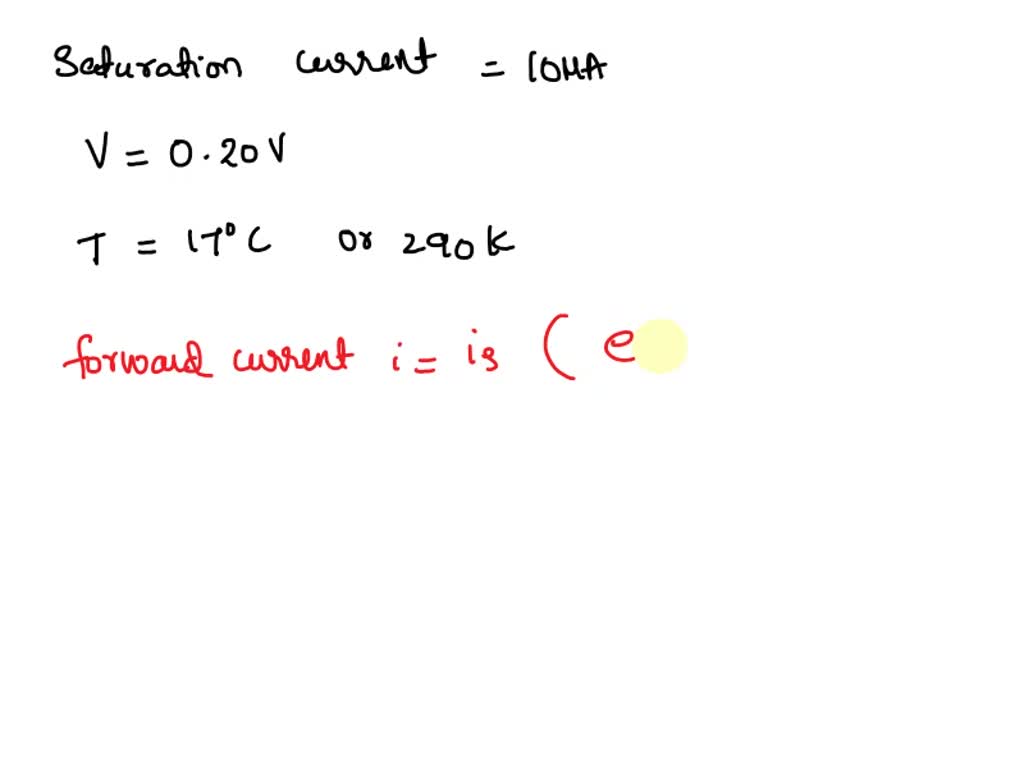 Saturation current = 10MA
V = 0.20 V
T = 17° C or 290 K
forward current i = is ( e